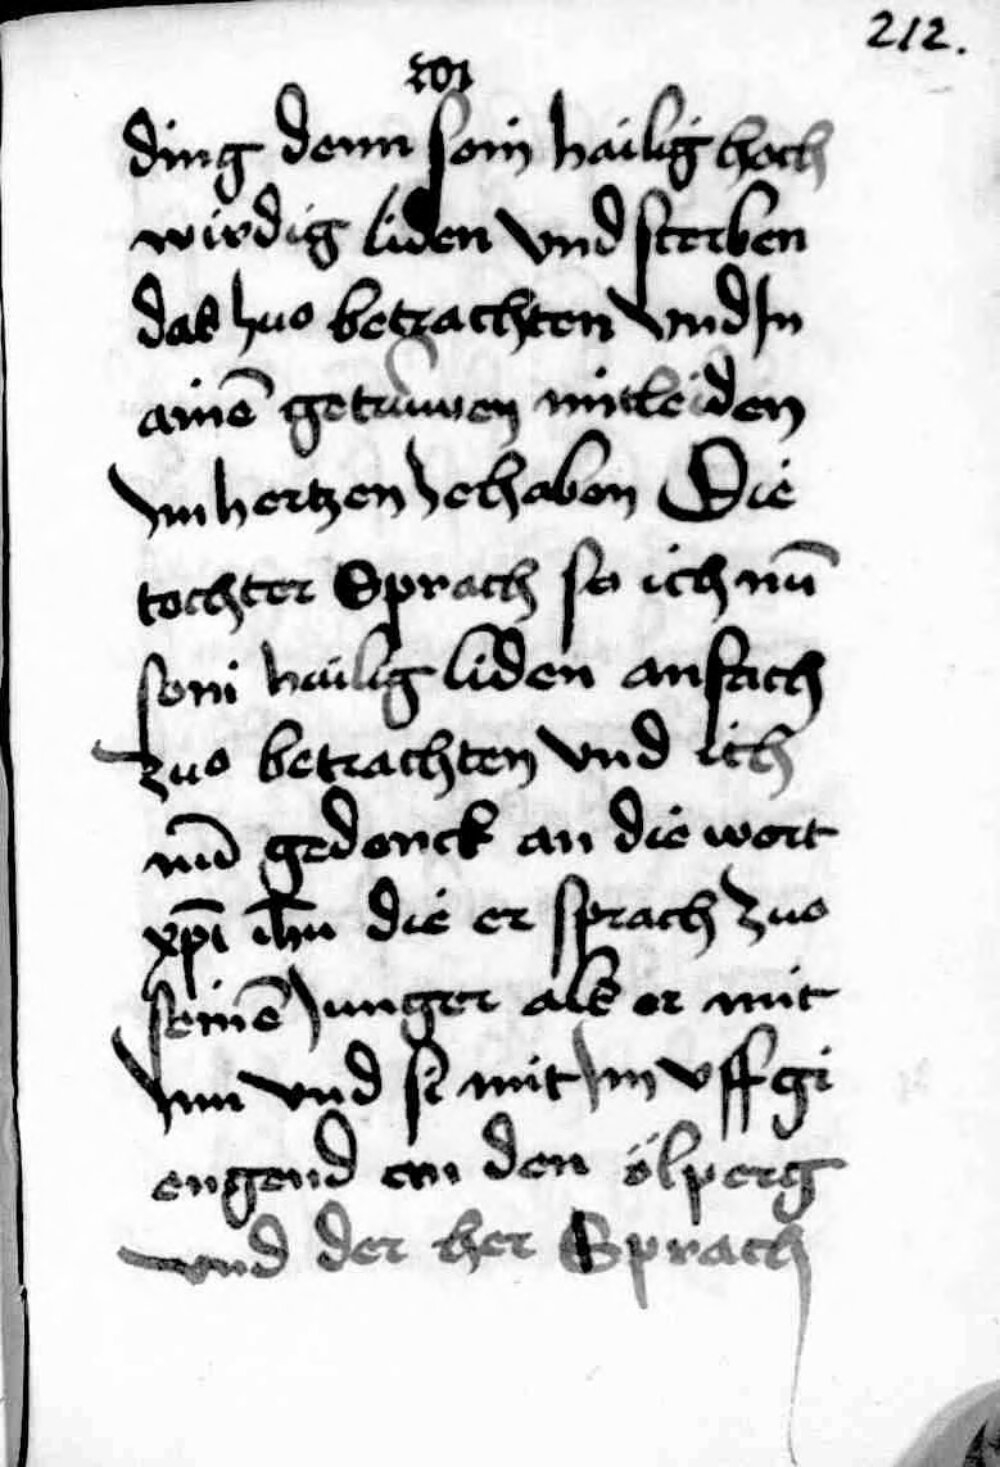 212.
ding denn sein hailig hoch
wirdig liden vnd sterben
das zuo betrachten vnd In
ainē getrüwen mitleiden
Im hertzen zehaben Die
tochter Sprach so ich nū
sein hailig liden anfach
zuo betrachten vnd ich
nū gedenck an die wort
xpī ihū die er sprach zuo
seinē Junger als er mit
Inn vnd si mit Im vff gi
engend an den ölperg
vnd der her Sprach